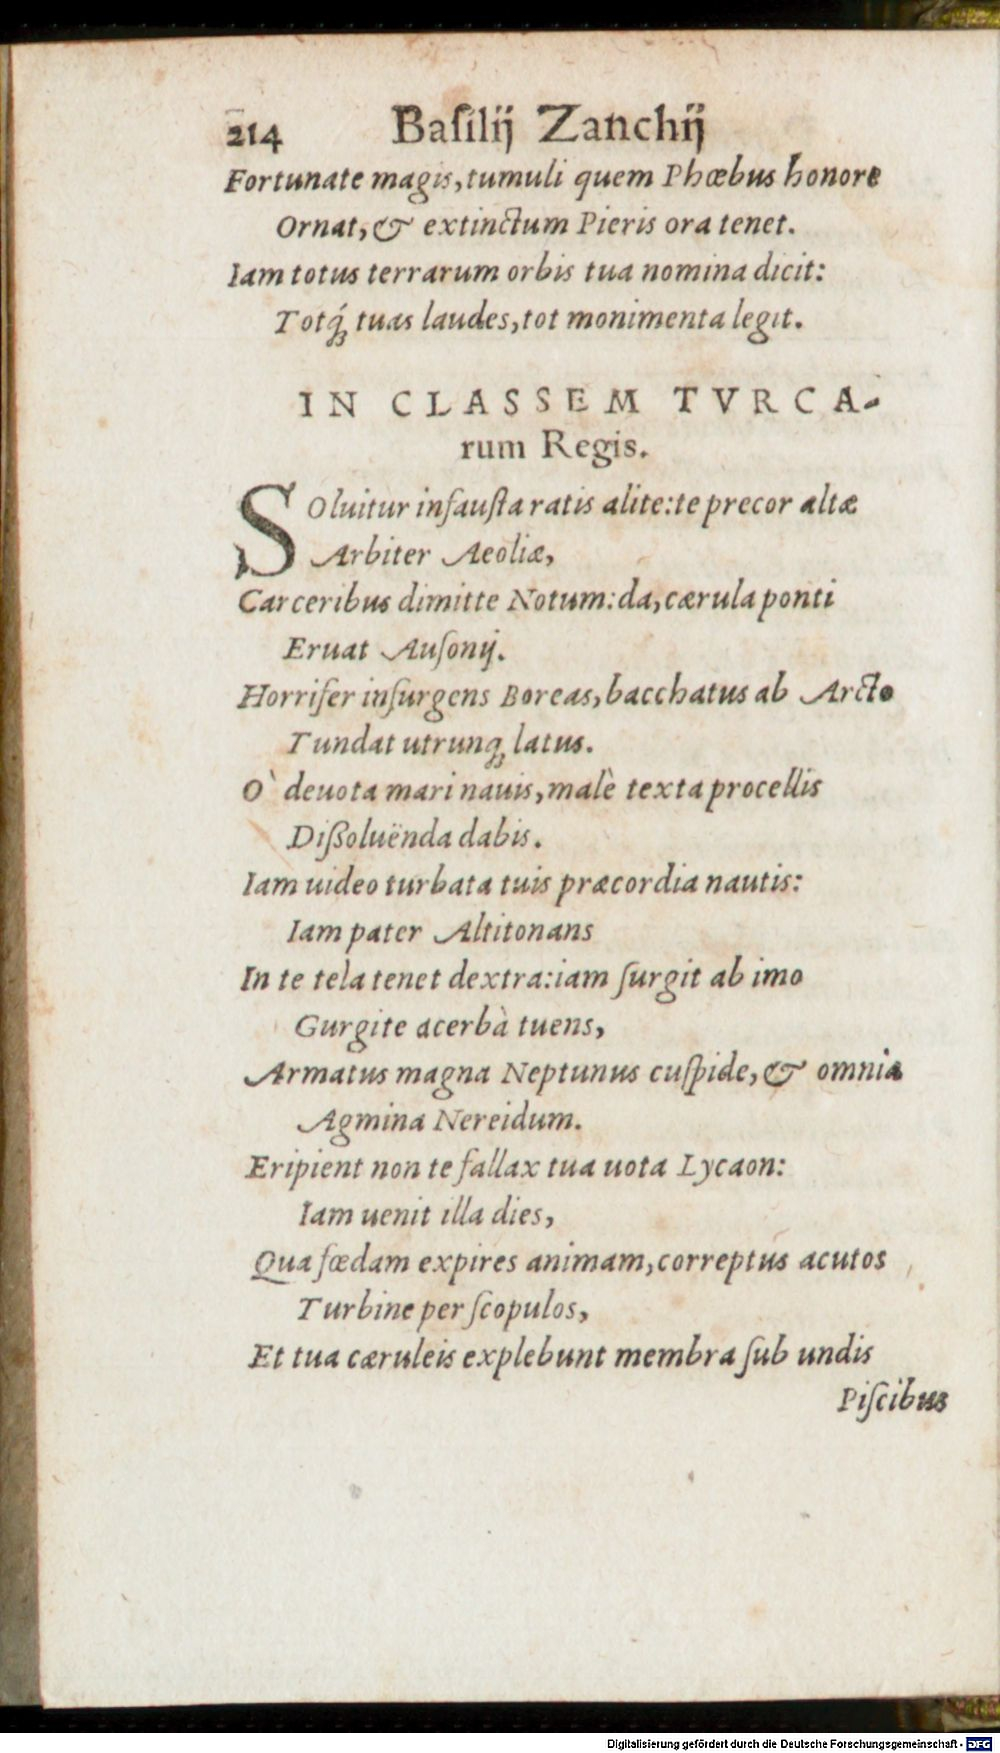 214 Baſilij Zanchij
Fortunate magis, tumuli quem Phœbus honore
Ornat, & extinctum Pieris ora tenet.
Iam totus terrarum orbis tua nomina dicit:
Totq́; tuas laudes, tot monimenta legit.
IN CLASSEM TVRCA-
rum Regis.
SOluitur infauſta ratis alite: te precor altæ
Arbiter Aeoliæ,
Carceribus dimitte Notum: da, cærula ponti
Eruat Auſonij.
Horrifer inſurgens Boreas, bacchatus ab Arcto
Tundat utrunq; latus.
O` deuota mari nauis, malè texta procellis
Dißoluënda dabis.
Iam uideo turbata tuis præcordia nautis:
Iam pater Altitonans
In te tela tenet dextra: iam ſurgit ab imo
Gurgite acerbà tuens,
Armatus magna Neptunus cuſpide, & omnia
Agmina Nereidum.
Eripient non te fallax tua uota Lycaon:
Iam uenit illa dies,
Qua fœdam expires animam, correptus acutos
Turbine per ſcopulos,
Et tua cæruleis explebunt membra ſub undis
Piſcibus
Digitalisierung gefördert durch die Deutsche Forschungsgemeinschaft - DFG